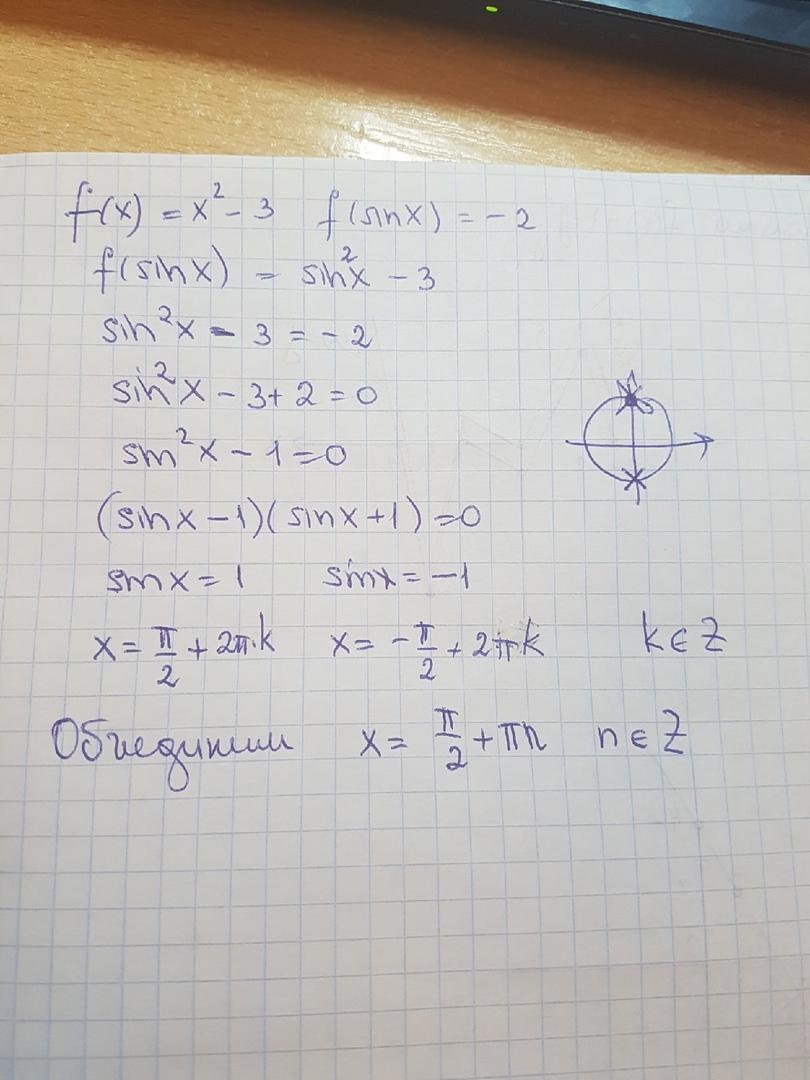 f(x) = x² - 3 f(sinx) = -2
f(sinx) = sin²x - 3
sin²x - 3 = -2
sin²x - 3+2=0
sin²x - 1=0
(sinx-1)(sinx+1)=0
sinx=1 sinx=-1
x=π/2+2π·k x=-π/2+2πk k∈Z
Объединим x= π/2+πn n∈Z